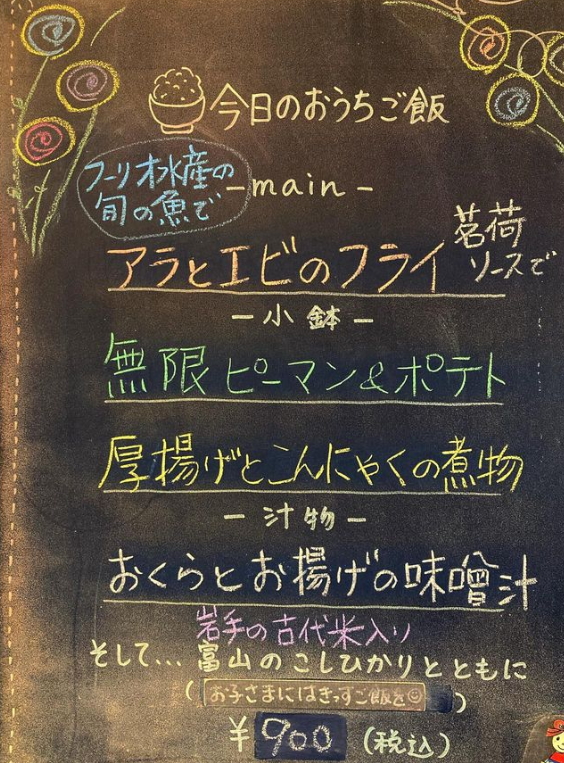 今日のおうちご飯
フーリオ水産の
旬の魚で
-main-
アラとエビのフライ
茗荷
ソースで
-小鉢-
無限ピーマン&ポテト
厚揚げとこんにゃくの煮物
-汁物-
おくらとお揚げの味噌汁
岩手の古代米入り
そして...富山のこしひかりとともに
(お子さまにはきっずご飯を☺)
¥900(税込)